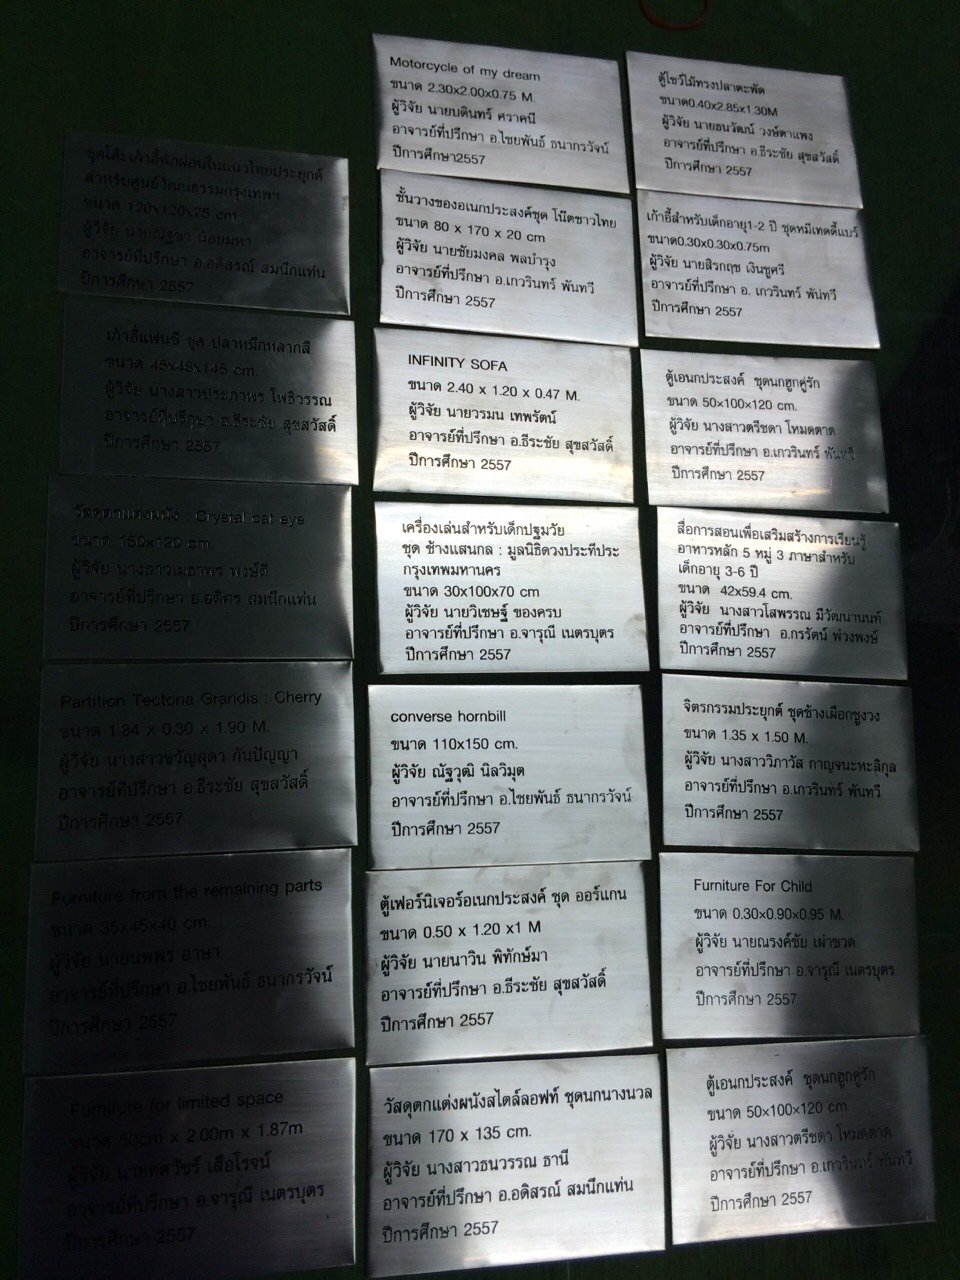 ชุดโต๊ะเก้าอี้พักผ่อนในแนวไทยประยุกต์
สำหรับศูนย์วัฒนธรรมกรุงเทพฯ
ขนาด 120x120x75 cm.
ผู้วิจัย นายณัฐจา น้อยมหา
อาจารย์ที่ปรึกษา อ.อดิสรณ์ สมนึกแท่น
ปีการศึกษา 2557
เก้าอี้แฟนซี ชุด ปลาหมึกหลากสี
ขนาด 45x48x145 cm.
ผู้วิจัย นางสาวประภาพร โพธิวรรณ
อาจารย์ที่ปรึกษา อ.ธีระชัย สุขสวัสดิ์
ปีการศึกษา 2557
วัสดุตกแต่งผนัง : Crystal cat eye
ขนาด 150x120 cm.
ผู้วิจัย นางสาวเมธาพร พงษ์ดี
อาจารย์ที่ปรึกษา อ.อดิศร สมนึกแท่น
ปีการศึกษา 2557
Partition Tectona Grandis : Cherry
ขนาด 1.84 x 0.30 x 1.90 M.
ผู้วิจัย นางสาวขวัญสุดา กันปัญญา
อาจารย์ที่ปรึกษา อ.ธีระชัย สุขสวัสดิ์
ปีการศึกษา 2557
Furniture from the remaining parts
ขนาด 35x45x40 cm.
ผู้วิจัย นายนพพร อาษา
อาจารย์ที่ปรึกษา อ.ไชยพันธ์ ธนากรวัจน์
ปีการศึกษา 2557
Furniture for limited space
ขนาด 50cm x 2.00m x 1.87m
ผู้วิจัย นายทศวัชร์ เสือโรจน์
อาจารย์ที่ปรึกษา อ.จารุณี เนตรบุตร
ปีการศึกษา 2557
Motorcycle of my dream
ขนาด 2.30x2.00x0.75 M.
ผู้วิจัย นายบดินทร์ ศวาคนี
อาจารย์ที่ปรึกษา อ.ไชยพันธ์ ธนากรวัจน์
ปีการศึกษา2557
ชั้นวางของอเนกประสงค์ชุด โน๊ตชาวไทย
ขนาด 80 x 170 x 20 cm
ผู้วิจัย นายชัยมงคล พลบำรุง
อาจารย์ที่ปรึกษา อ.เกวรินทร์ พันทวี
ปีการศึกษา 2557
INFINITY SOFA
ขนาด 2.40 x 1.20 x 0.47 M.
ผู้วิจัย นายวรมน เทพรัตน์
อาจารย์ที่ปรึกษา อ.ธีระชัย สุขสวัสดิ์
ปีการศึกษา 2557
เครื่องเล่นสำหรับเด็กปฐมวัย
ชุด ช้างแสนกล : มูลนิธิดวงประทีประ
กรุงเทพมหานคร
ขนาด 30x100x70 cm
ผู้วิจัย นายวิเชษฐ์ ของครบ
อาจารย์ที่ปรึกษา อ.จารุณี เนตรบุตร
ปีการศึกษา 2557
converse hornbill
ขนาด 110x150 cm.
ผู้วิจัย ณัฐวุฒิ นิลวิมุต
อาจารย์ที่ปรึกษา อ.ไชยพันธ์ ธนากรวัจน์
ปีการศึกษา 2557
ตู้เฟอร์นิเจอร์อเนกประสงค์ ชุด ออร์แกน
ขนาด 0.50 x 1.20 x1 M
ผู้วิจัย นายนาวิน พิทักษ์มา
อาจารย์ที่ปรึกษา อ.ธีระชัย สุขสวัสดิ์
ปีการศึกษา 2557
วัสดุตกแต่งผนังสไตล์ลอฟท์ ชุดนกนางนวล
ขนาด 170 x 135 cm.
ผู้วิจัย นางสาวธนวรรณ ธานี
อาจารย์ที่ปรึกษา อ.อดิสรณ์ สมนึกแท่น
ปีการศึกษา 2557
ตู้โชว์ไม้ทรงปลาตะพัด
ขนาด0.40x2.85x1.30M
ผู้วิจัย นายธนวัฒน์ วงษ์ตาแพง
อาจารย์ที่ปรึกษา อ.ธีระชัย สุขสวัสดิ์
ปีการศึกษา 2557
เก้าอี้สำหรับเด็กอายุ1-2 ปี ชุดหมีเทดดี้แบร์
ขนาด0.30x0.30x0.75m
ผู้วิจัย นายสิรกฤช เงินชูศรี
อาจารย์ที่ปรึกษา อ. เกวรินทร์ พันทวี
ปีการศึกษา 2557
ตู้เอนกประสงค์ ชุดนกฮูกคู่รัก
ขนาด 50x100x120 cm.
ผู้วิจัย นางสาวตรีชดา โหมดตาด
อาจารย์ที่ปรึกษา อ.เกวรินทร์ พันทวี
ปีการศึกษา 2557
สื่อการสอนเพื่อเสริมสร้างการเรียนรู้
อาหารหลัก 5 หมู่ 3 ภาษาสำหรับ
เด็กอายุ 3-6 ปี
ขนาด 42x59.4 cm.
ผู้วิจัย นางสาวโสพรรณ มีวัฒนานนท์
อาจารย์ที่ปรึกษา อ.กรรัตน์ พ่วงพงษ์
ปีการศึกษา 2557
จิตรกรรมประยุกต์ ชุดช้างเผือกชูงวง
ขนาด 1.35 x 1.50 M.
ผู้วิจัย นางสาววิภาวัส กาญจนะหะลิกุล
อาจารย์ที่ปรึกษา อ.เกวรินทร์ พันทวี
ปีการศึกษา 2557
Furniture For Child
ขนาด 0.30x0.90x0.95 M.
ผู้วิจัย นายณรงค์ชัย เผ่าชวด
อาจารย์ที่ปรึกษา อ.จารุณี เนตรบุตร
ปีการศึกษา 2557
ตู้เอนกประสงค์ ชุดนกฮูกคู่รัก
ขนาด 50x100x120 cm.
ผู้วิจัย นางสาวตรีชดา โหมดตาด
อาจารย์ที่ปรึกษา อ.เกวรินทร์ พันทวี
ปีการศึกษา 2557